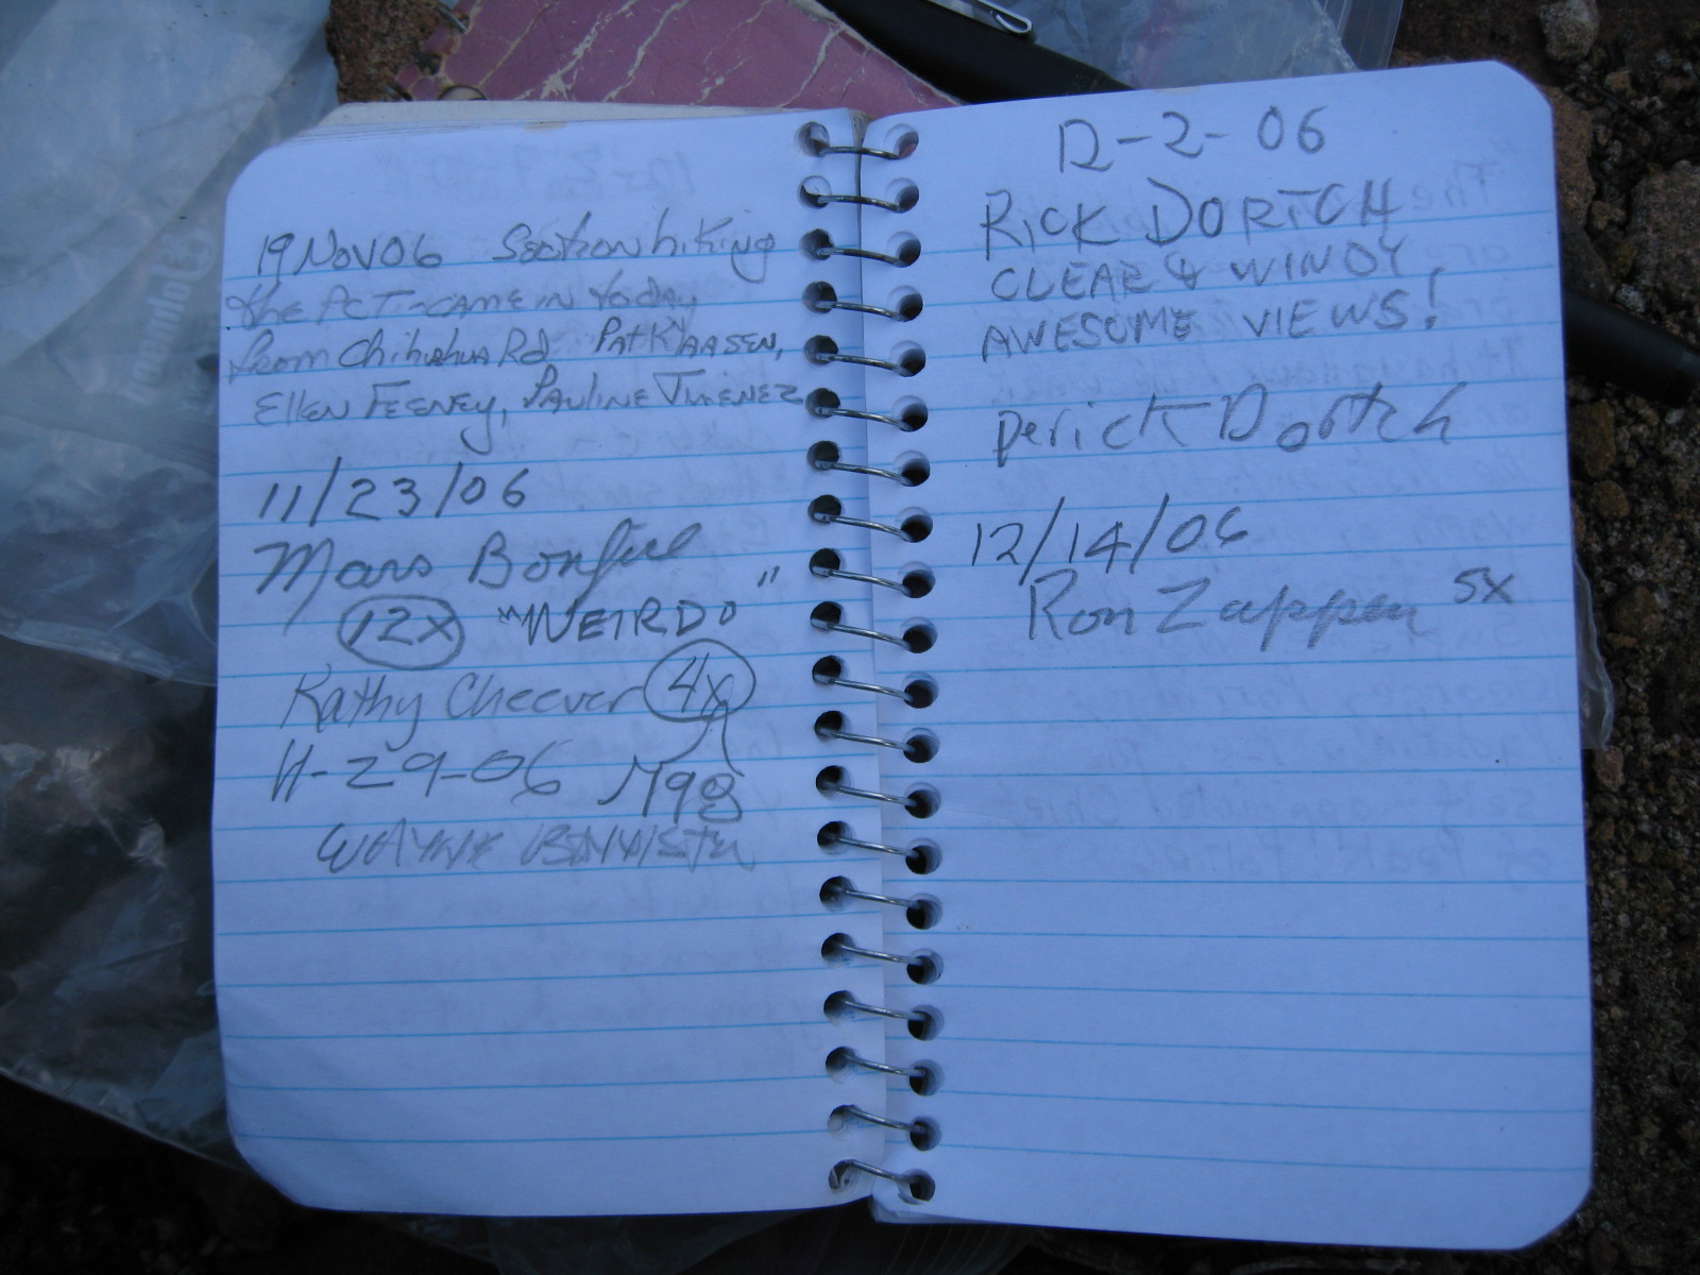 19 Nov 06 Section hiking
the PCT - came in today
from Chihuahua Rd Pat Klaasen,
Ellen Feeney, Pauline Jimenez
11/23/06
Mars Bonfire
12x "WEIRDO"
Kathy Cheever 4x
11-29-06
WAYNE
12-2-06
RICK DORTCH
CLEAR & WINDY,
AWESOME VIEWS!
Derick Dortch
12/14/06
Ron Zappen 5x